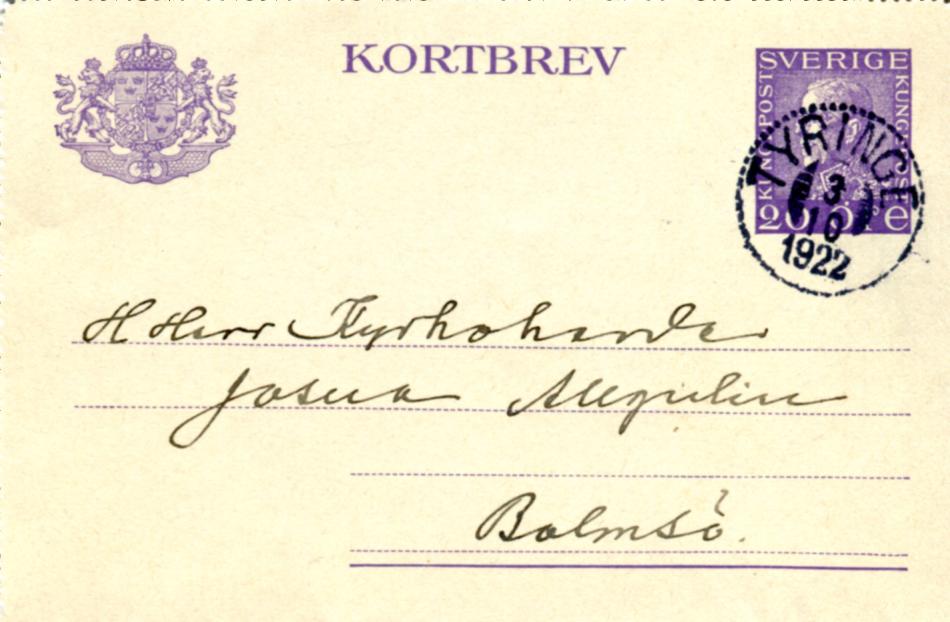 KORTBREV
SVERIGE
POST
KUNGL
20 ÖRE
TYRINGE
3
10
1922
H Herr Kyrkoherde
Josua Allgulin
Bolmsö.